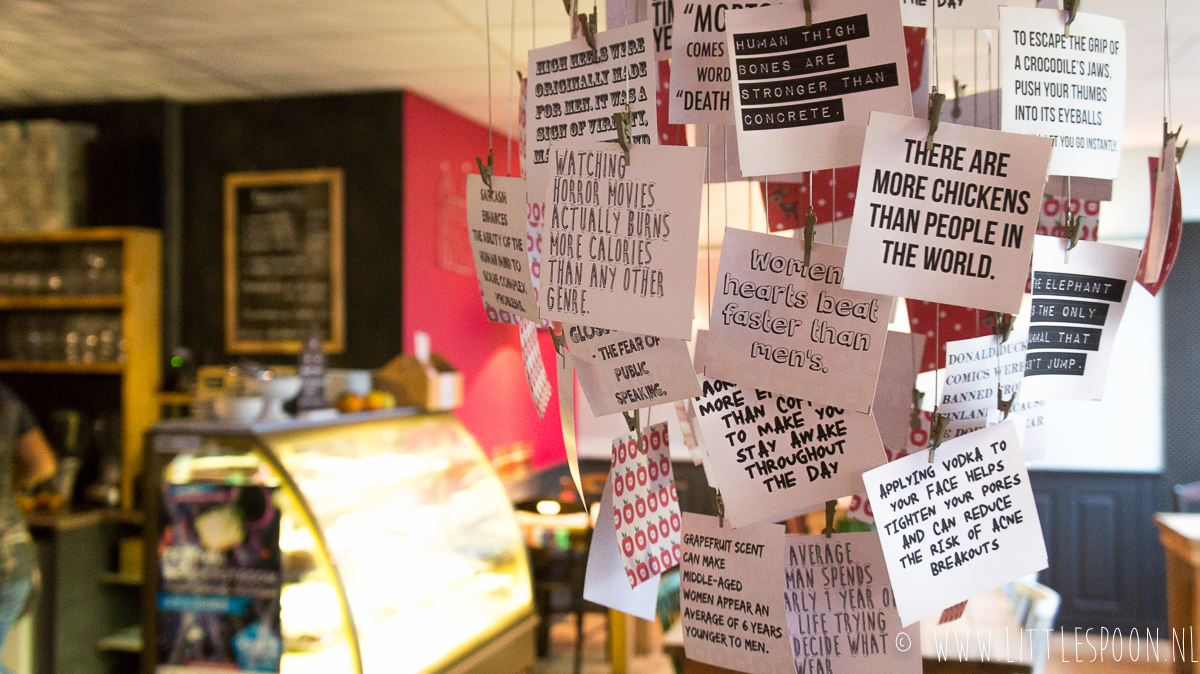 HIGH HEELS WERE
ORIGINALLY MADE
FOR MEN. IT WAS A
SIGN OF
"MORTG
COMES
WORD
"DEATH
HUMAN THIGH
BONES ARE
STRONGER THAN
CONCRETE.
THE DAY
TO ESCAPE THE GRIP OF
A CROCODILE'S JAWS,
PUSH YOUR THUMBS
INTO ITS EYEBALLS
LET YOU GO INSTANTLY.
SARCASM
ENHANCES
THE ABILITY OF THE
HUMAN MIND TO
SOLVE COMPLEX
PROBLEMS.
WATCHING
HORROR MOVIES
ACTUALLY BURNS
MORE CALORIES
THAN ANY OTHER
GENRE.
THERE ARE
MORE CHICKENS
THAN PEOPLE IN
THE WORLD.
Women's
hearts beat
faster than
men's.
THE ELEPHANT
IS THE ONLY
THAT
JUMP.
GLOSSO
- THE FEAR OF
PUBLIC
SPEAKING.
DONALD DUCK
COMICS WERE
BANNED FROM
FINLAND
MORE
THAN
TO MAKE YOU
STAY AWAKE
THROUGHOUT
THE DAY
APPLYING VODKA TO
YOUR FACE HELPS
TIGHTEN YOUR PORES
AND CAN REDUCE
THE RISK OF ACNE
BREAKOUTS
GRAPEFRUIT SCENT
CAN MAKE
MIDDLE-AGED
WOMEN APPEAR AN
AVERAGE OF 6 YEARS
YOUNGER TO MEN.
AVERAGE
MAN SPENDS
ARLY 1 YEAR O
LIFE TRYING
DECIDE WHAT
WEAR
© WWW.LITTLESPOON.NL